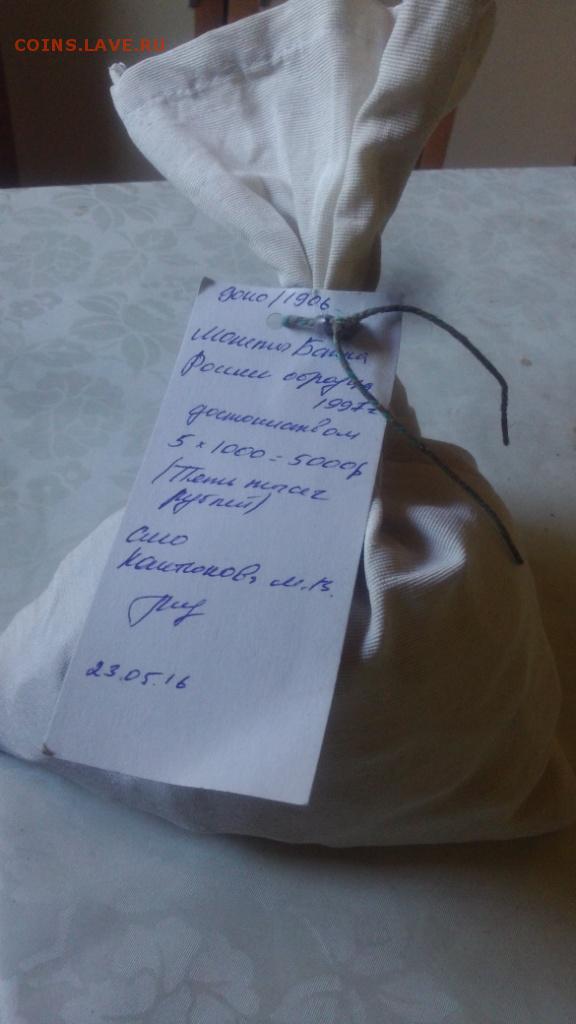 COINS.LAVE.RU
допо/1906
Монета Банка
России образца
1997г
достоинством
5 × 1000 = 5000р
(Пять тысяч
рублей)
М.В.
23.05.16